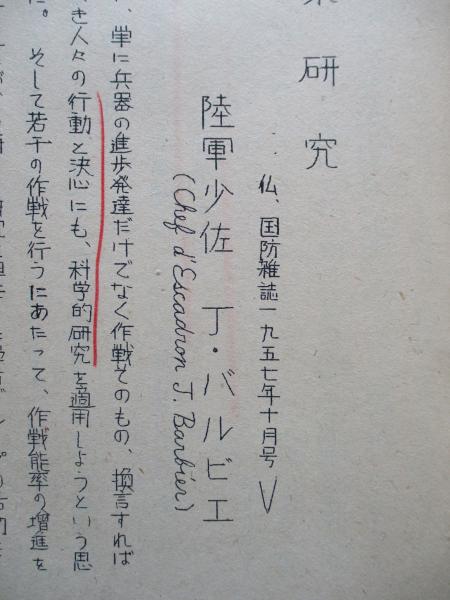 研究
仏、国防雑誌一九五七年十月号
陸軍少佐 J・バルビエ
(Chef d'Escadron J. Barbier)
、単に兵器の進歩発達だけでなく作戦そのもの、換言すれば
き人々の行動と決心にも、科学的研究を適用しようという思
。そして若干の作戦を行うにあたって、作戦能率の増進を